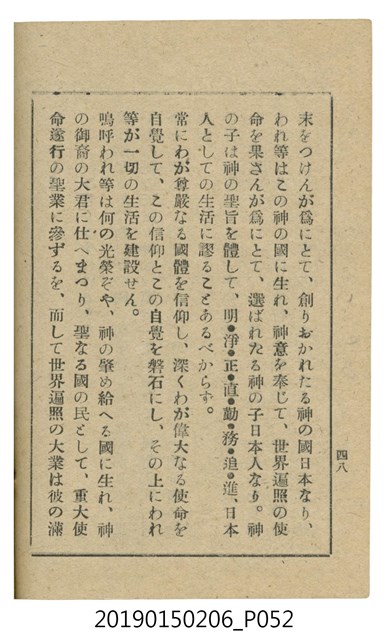 末をつけんが爲にとて、創りおかれたる神の國日本なり、
われ等はこの神の國に生れ、神意を奉じて、世界遍照の使
命を果さんが爲にとて、選ばれたる神の子日本人なり。神
の子は神の聖旨を體して、明●淨●正●直●勤●務●追●進、日本
人としての生活に謬ることあるべからず。
常にわが尊嚴なる國體を信仰し、深くわが偉大なる使命を
自覺して、この信仰とこの自覺を磐石にし、その上にわれ
等が一切の生活を建設せん。
嗚呼われ等は何の光榮ぞや、神の肇め給へる國に生れ、神
の御裔の大君に仕へまつり、聖なる國の民として、重大使
命遂行の聖業に參ずるを、而して世界遍照の大業は彼の滿
四八
20190150206_P052